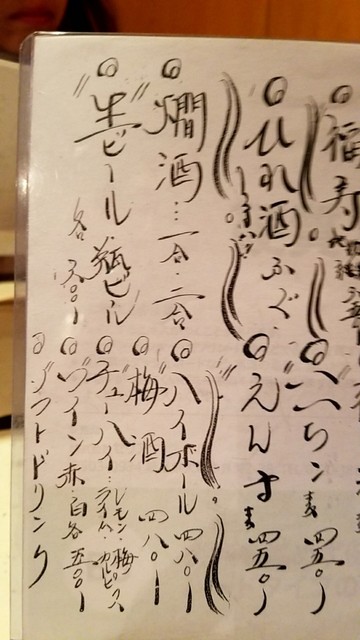 福寿
ひれ酒 ふぐ
燗酒… 一合・二合
生ビール 瓶ビール
各 五〇〇ー
いいちこ 麦 四五〇ー
えんま 麦 四五〇ー
ハイボール 四八〇ー
梅酒 四八〇ー
チューハイ… レモン・梅
ライム・カルピス
ワイン 赤・白 各 五〇〇ー
ソフトドリンク